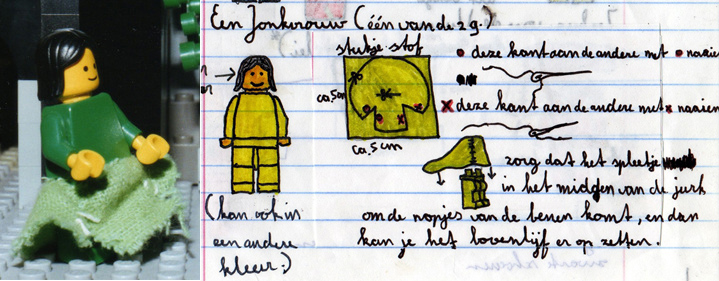 Een Jonkvrouw (één van de 29.)
stukje stof
ca. 5 cm
ca. 5 cm
• deze kant aan de andere met • naaien
x deze kant aan de andere met x naaien
zorg dat het spleetje
in het midden van de jurk
om de nopjes van de benen komt, en dan
kan je het bovenlijf er op zetten.
(kan ook in
een andere
kleur:)